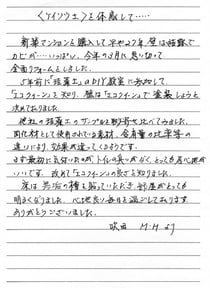 くケイソウ土を体感して.....
新築マンションを購入して早や2年、壁は結露で
カビが…いっぱい。今年の3月に思い切って
全面リフォームしました。
5年前に「珪藻土のDIY教室に参加して、
「エコクイーン」を知り、壁は「エコクイーン」で塗装しようと
決めておりました。
他社の珪藻土のサンプルを取り寄せ比べてみました。
同化材として使用されている素材、含有量の比率等の
違いにより、効果が違ってくるようです。
まず最初に気付いたのがトイレの臭いがなく、とても居心地が
いいです。改めて「エコクイーン」の良さを知りました。
床は の種を貼っていただき、部屋がとても
明るくなりました。心地良い毎日を過ごしております。
ありがとうございました。
吹田 M・Mより